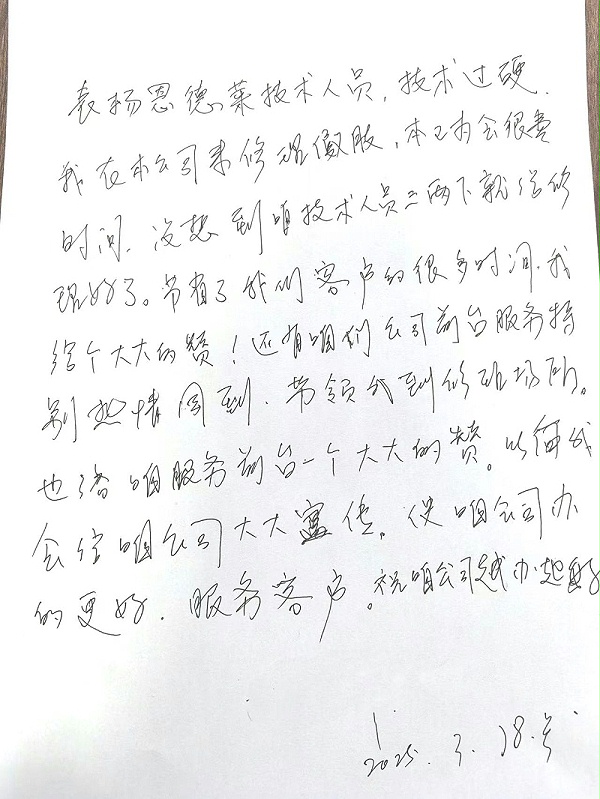 表扬恩德莱技术人员，技术过硬.
我在本公司来修理假肢，本以为会很费
时间.没想到咱技术人员三两下就给修
理好了。节省了我们客户的很多时间.我
给个大大的赞！还有咱们公司前台服务特
别热情周到.带领我到修理场所。
也给咱服务前台一个大大的赞。以后我
会给咱公司大大宣传。使咱公司办
的更好.服务客户。祝咱公司越办越好
2025.3.18.号